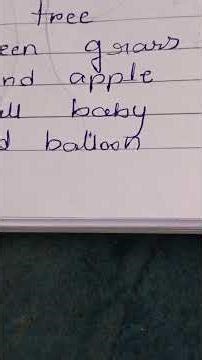 tree
een grars
nd apple
ll baby
d balloon